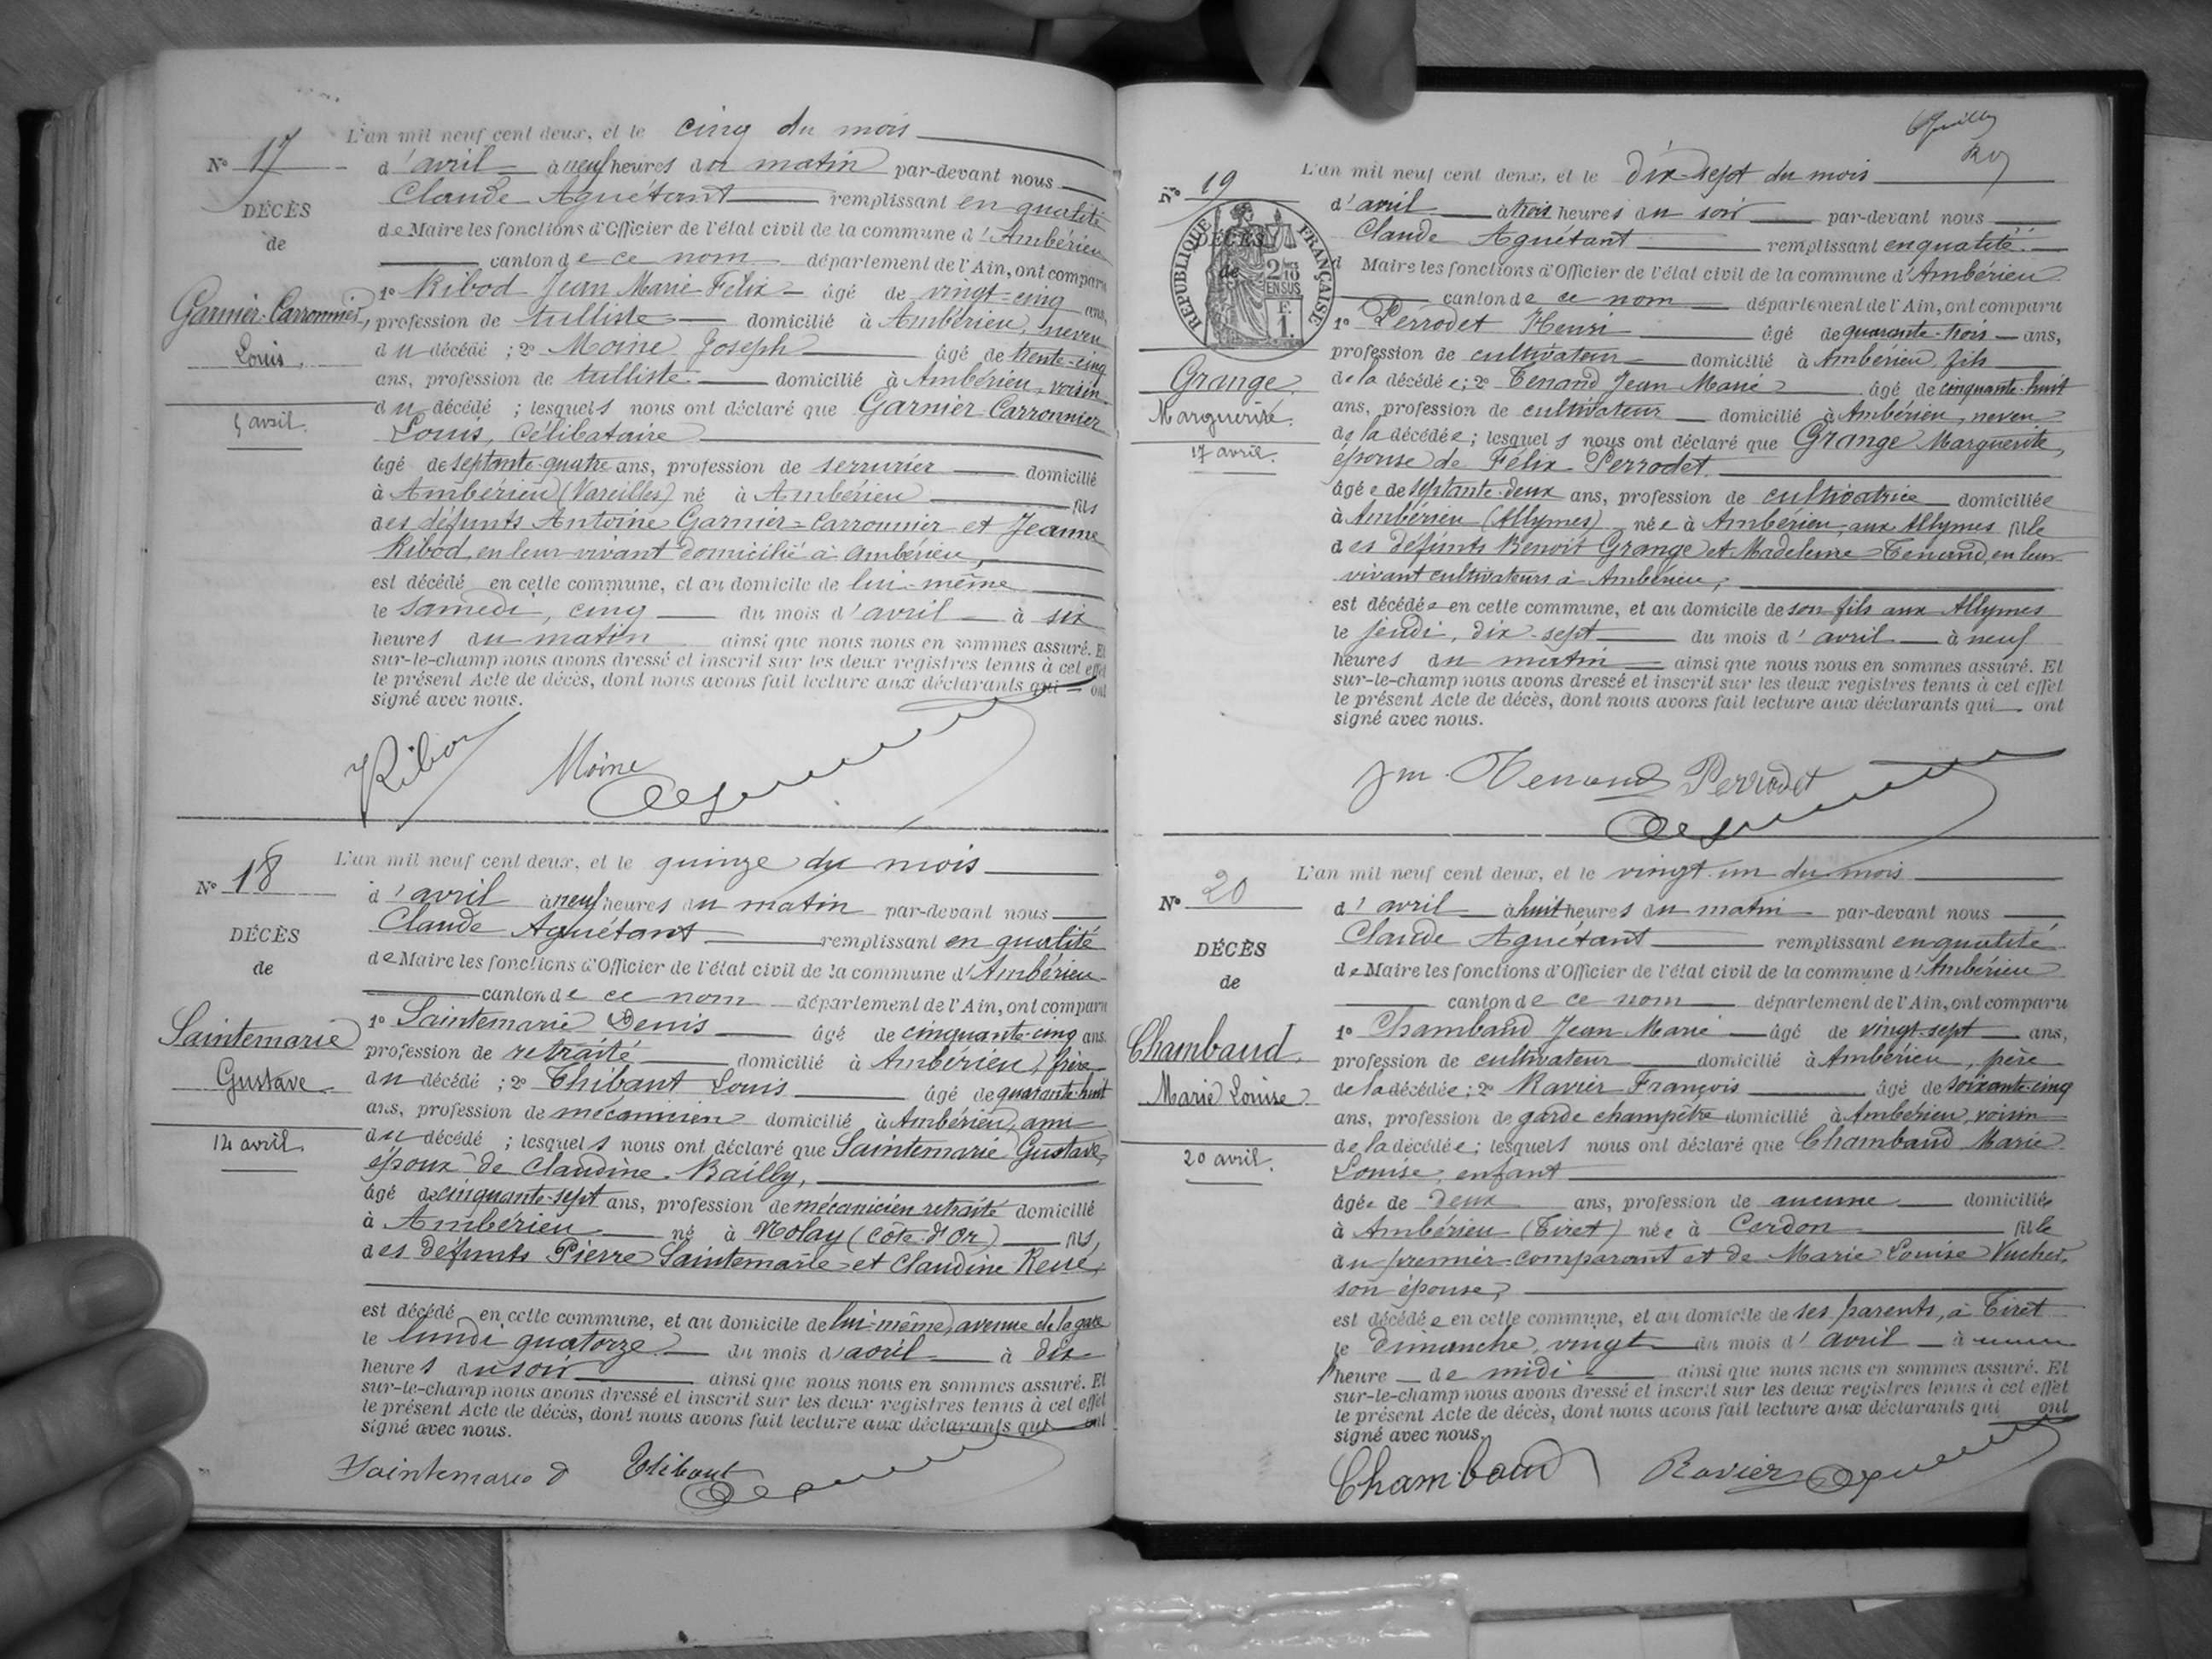 L'an mil neuf cent deux, et le cinq du mois
N° 17
d'avril à neuf heures du matin par-devant nous
Claude Aguétant remplissant en qualité
DÉCÈS
de Maire les fonctions d'Officier de l'état civil de la commune d'Ambérieu
de
canton de ce nom département de l'Ain, ont comparu
1° Ribod Jean Marie Félix âgé de vingt-cinq ans,
Garnier-Carronnier,
profession de tulliste domicilié à Ambérieu, neveu
Louis.
du décédé ; 2° Moine Joseph âgé de trente-cinq
ans, profession de tulliste domicilié à Ambérieu, voisin
5 avril.
du décédé ; lesquels nous ont déclaré que Garnier Carronnier
Louis, Célibataire
âgé de septante-quatre ans, profession de serrurier domicilié
à Ambérieu (Vareilles) né à Ambérieu fils
des défunts Antoine Garnier-Carronnier et Jeanne
Ribod, en leur vivant domicilié à Ambérieu,
est décédé en cette commune, et au domicile de lui-même
le samedi, cinq du mois d'avril à six
heures du matin ainsi que nous nous en sommes assuré. Et
sur-le-champ nous avons dressé et inscrit sur les deux registres tenus à cet effet
le présent Acte de décès, dont nous avons fait lecture aux déclarants qui ont
signé avec nous.
Ribod Moine
L'an mil neuf cent deux, et le quinze du mois
N° 18
d'avril à neuf heures du matin par-devant nous
Claude Aguétant remplissant en qualité
DÉCÈS
de Maire les fonctions d'Officier de l'état civil de la commune d'Ambérieu
de
canton de ce nom département de l'Ain, ont comparu
1° Saintemarie Denis âgé de cinquante-cinq ans.
Saintemarie
profession de retraité domicilié à Ambérieu, frère
Gustave
du décédé ; 2° Thibaut Louis âgé de quarante-huit
ans, profession de mécanicien domicilié à Ambérieu, ami
14 avril.
du décédé ; lesquels nous ont déclaré que Saintemarie Gustave,
époux de Claudine Bailly,
âgé de cinquante-sept ans, profession de mécanicien retraité domicilié
à Ambérieu né à Nolay (Côte-d'Or) fils,
des défunts Pierre Saintemarie et Claudine René,
est décédé en cette commune, et au domicile de lui-même, avenue de la gare
le lundi quatorze du mois d'avril à dix
heures du soir ainsi que nous nous en sommes assuré. Et
sur-le-champ nous avons dressé et inscrit sur les deux registres tenus à cet effet
le présent Acte de décès, dont nous avons fait lecture aux déclarants qui ont
signé avec nous.
Saintemarie D Thibaut
L'an mil neuf cent deux, et le dix-sept du mois
N° 19
d'avril à trois heures du soir par-devant nous
Claude Aguétant remplissant en qualité
RÉPUBLIQUE FRANÇAISE
DÉCÈS
de
2/10 EN SUS
F.
1.
d Maire les fonctions d'Officier de l'état civil de la commune d'Ambérieu
canton de ce nom département de l'Ain, ont comparu
1° Perrodet Henri âgé de quarante-trois ans,
profession de cultivateur domicilié à Ambérieu, fils
Grange
de la décédée ; 2° Tenand Jean Marie âgé de cinquante-huit
Marguerite.
ans, profession de cultivateur domicilié à Ambérieu, neveu
de la décédée ; lesquels nous ont déclaré que Grange Marguerite,
17 avril.
épouse de Félix Perrodet.
âgée de septante-deux ans, profession de cultivatrice domiciliée
à Ambérieu (Allymes) née à Ambérieu, aux Allymes fille
des défunts Benoît Grange et Madeleine Tenand, en leur
vivant cultivateurs à Ambérieu,
est décédée en cette commune, et au domicile de son fils aux Allymes
le jeudi, dix-sept du mois d'avril à neuf
heures du matin ainsi que nous nous en sommes assuré. Et
sur-le-champ nous avons dressé et inscrit sur les deux registres tenus à cet effet
le présent Acte de décès, dont nous avons fait lecture aux déclarants qui ont
signé avec nous.
Jm. Tenand Perrodet
L'an mil neuf cent deux, et le vingt-un du mois
N° 20
d'avril à huit heures du matin par-devant nous
Claude Aguétant remplissant en qualité
DÉCÈS
de Maire les fonctions d'Officier de l'état civil de la commune d'Ambérieu
de
canton de ce nom département de l'Ain, ont comparu
1° Chambaud Jean Marie âgé de vingt-sept ans,
Chambaud.
profession de cultivateur domicilié à Ambérieu, père
Marie Louise
de la décédée ; 2° Ravier François âgé de soixante-cinq
ans, profession de garde champêtre domicilié à Ambérieu, voisin
de la décédée ; lesquels nous ont déclaré que Chambaud Marie
20 avril.
Louise, enfant
âgée de deux ans, profession de aucune domiciliée
à Ambérieu (Tiret) née à Cordon fille
du premier comparant et de Marie Louise Vuchet,
son épouse,
est décédée en cette commune, et au domicile de ses parents, à Tiret
le Dimanche, vingt du mois d'avril à une
heure de midi ainsi que nous nous en sommes assuré. Et
sur-le-champ nous avons dressé et inscrit sur les deux registres tenus à cet effet
le présent Acte de décès, dont nous avons fait lecture aux déclarants qui ont
signé avec nous.
Chambaud Ravier